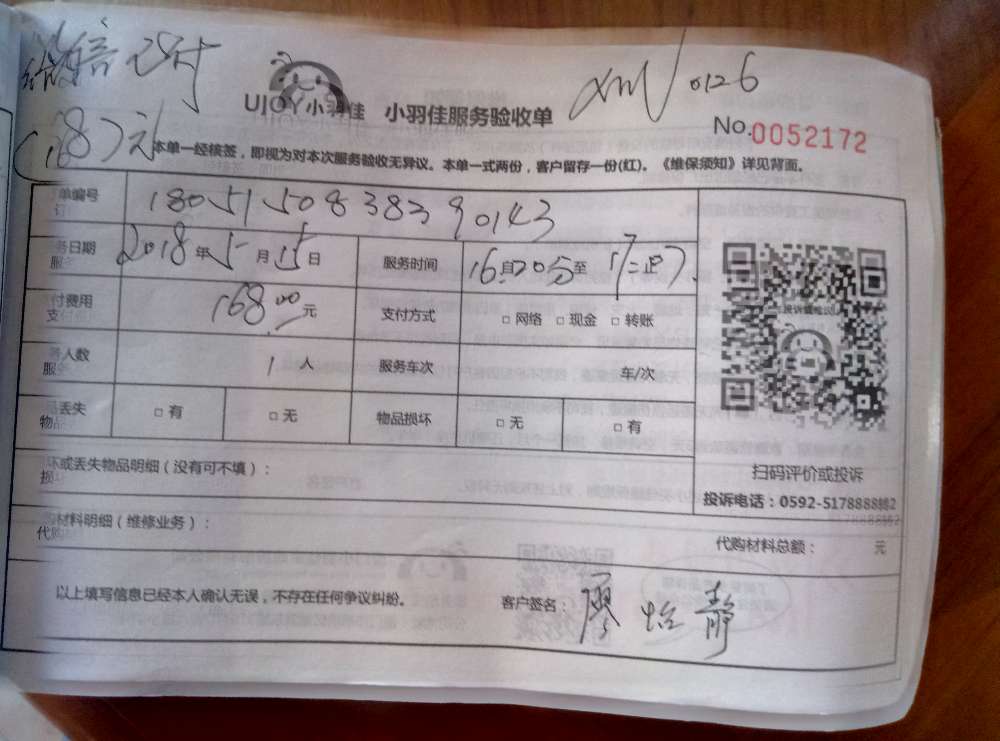 微信已付
XMV 0126
UJOY小羽佳 小羽佳服务验收单
(168)元
No.0052172
本单一经核签，即视为对本次服务验收无异议。本单一式两份，客户留存一份(红)。《维保须知》详见背面。
订单编号 180515083890143
服务日期 2018年5月15日 服务时间 16点20分至17点
支付费用 168.00元 支付方式 □网络 □现金 □转账
服务人数 1人 服务车次 车/次
物品丢失 □有 □无 物品损坏 □无 □有
扫码评价或投诉
投诉电话：0592-5178888转2
损坏或丢失物品明细（没有可不填）：
代购材料明细（维修业务）：
代购材料总额： 元
以上填写信息已经本人确认无误，不存在任何争议纠纷。 客户签名：廖怡静